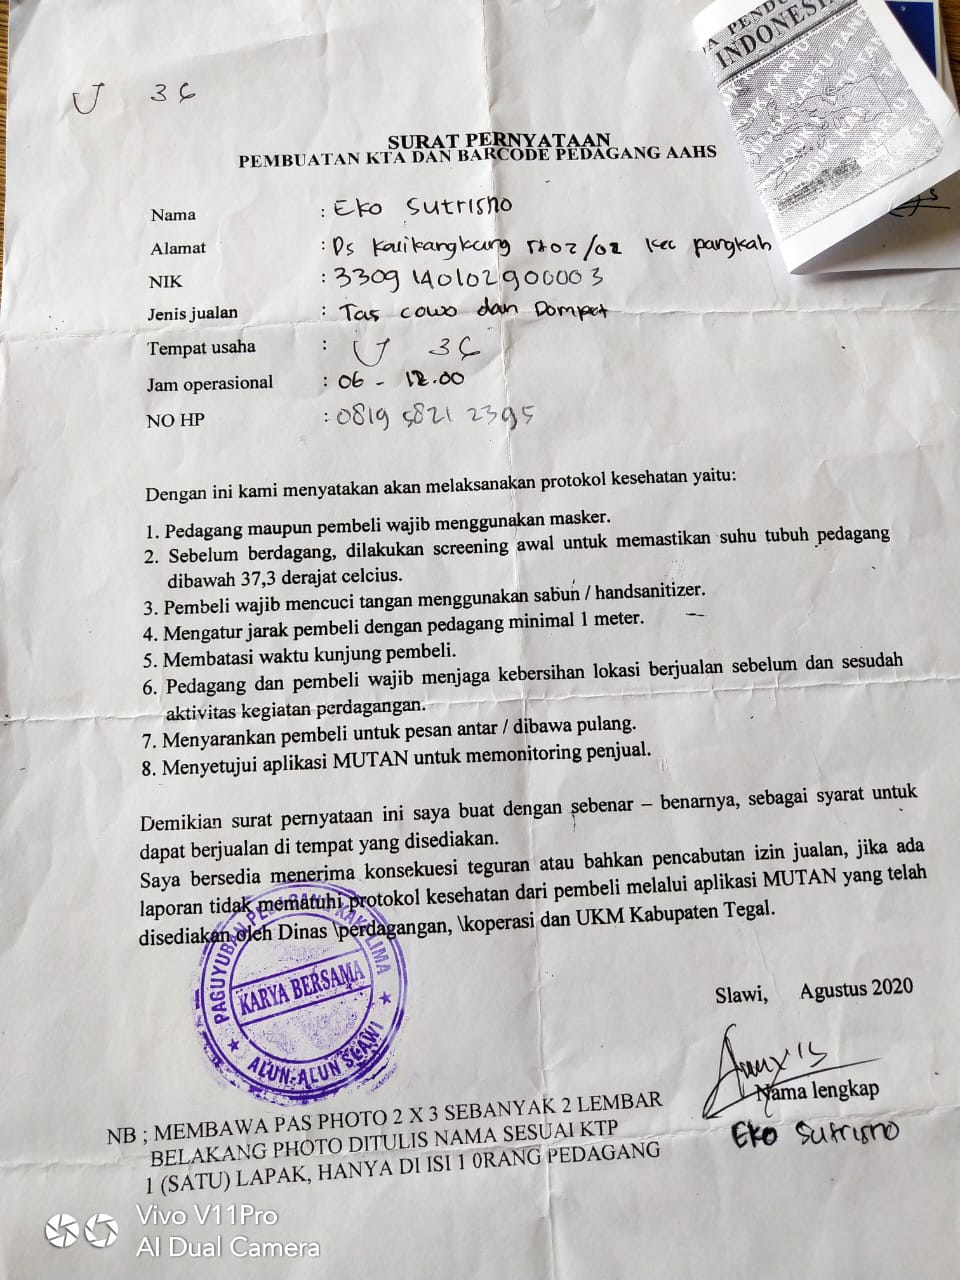 U 36
A PENDU
INDONESIA
SURAT PERNYATAAN
PEMBUATAN KTA DAN BARCODE PEDAGANG AAHS
Nama : Eko Sutrisno
Alamat : Ds Kalikangkung rt 02/02 kec pangkah
NIK : 3309140102900003
Jenis jualan : Tas cowo dan Dompet
Tempat usaha : U 36
Jam operasional : 06 - 12.00
NO HP : 0819 5821 2395
Dengan ini kami menyatakan akan melaksanakan protokol kesehatan yaitu:
1. Pedagang maupun pembeli wajib menggunakan masker.
2. Sebelum berdagang, dilakukan screening awal untuk memastikan suhu tubuh pedagang
dibawah 37,3 derajat celcius.
3. Pembeli wajib mencuci tangan menggunakan sabun / handsanitizer.
4. Mengatur jarak pembeli dengan pedagang minimal 1 meter.
5. Membatasi waktu kunjung pembeli.
6. Pedagang dan pembeli wajib menjaga kebersihan lokasi berjualan sebelum dan sesudah
aktivitas kegiatan perdagangan.
7. Menyarankan pembeli untuk pesan antar / dibawa pulang.
8. Menyetujui aplikasi MUTAN untuk memonitoring penjual.
Demikian surat pernyataan ini saya buat dengan sebenar – benarnya, sebagai syarat untuk
dapat berjualan di tempat yang disediakan.
Saya bersedia menerima konsekuesi teguran atau bahkan pencabutan izin jualan, jika ada
laporan tidak mematuhi protokol kesehatan dari pembeli melalui aplikasi MUTAN yang telah
disediakan oleh Dinas \perdagangan, \koperasi dan UKM Kabupaten Tegal.
PAGUYUBAN PEDAGANG KAKI LIMA
KARYA BERSAMA
ALUN-ALUN SLAWI
Slawi, Agustus 2020
Nama lengkap
Eko Sutrisno
NB ; MEMBAWA PAS PHOTO 2 X 3 SEBANYAK 2 LEMBAR
BELAKANG PHOTO DITULIS NAMA SESUAI KTP
1 (SATU) LAPAK, HANYA DI ISI 1 0RANG PEDAGANG
Vivo V11Pro
AI Dual Camera